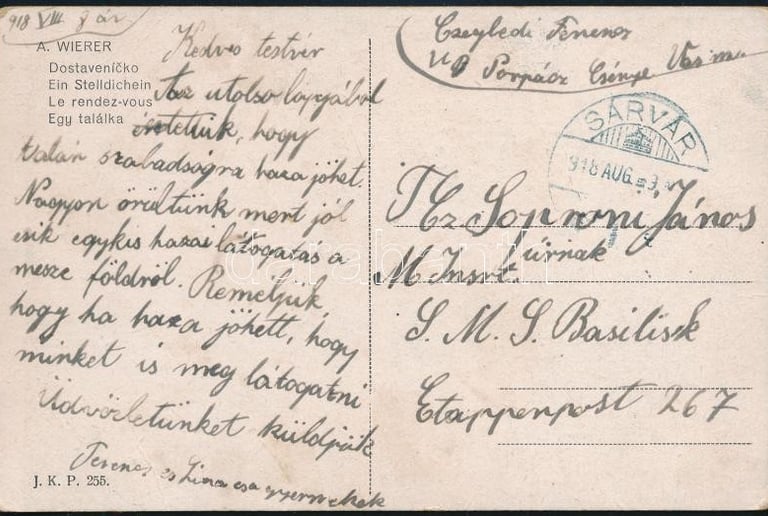 918 VIII 8 án
A. WIERER
Dostaveníčko
Ein Stelldichein
Le rendez-vous
Egy találka
Kedves testvér
Az utolso lapjából
értettük, hogy
talán szabadságra haza jöhet.
Nagyon örültünk mert jól
esik egykis hazai látogatas a
mesze földről. Reméljük
hogy ha haza jöhett, hogy
minket is meg látogatni
Üdvözletünket küldjük
Ferencz es Lina es a gyermekek
J. K. P. 255.
Czegledi Ferencz
Porpácz Csénye Vas m.
SÁRVÁR
918 AUG. 9.
Soproni János
úrnak
M. Inst.
S. M. S. Basilisk
Etappenpost 267
darabanth